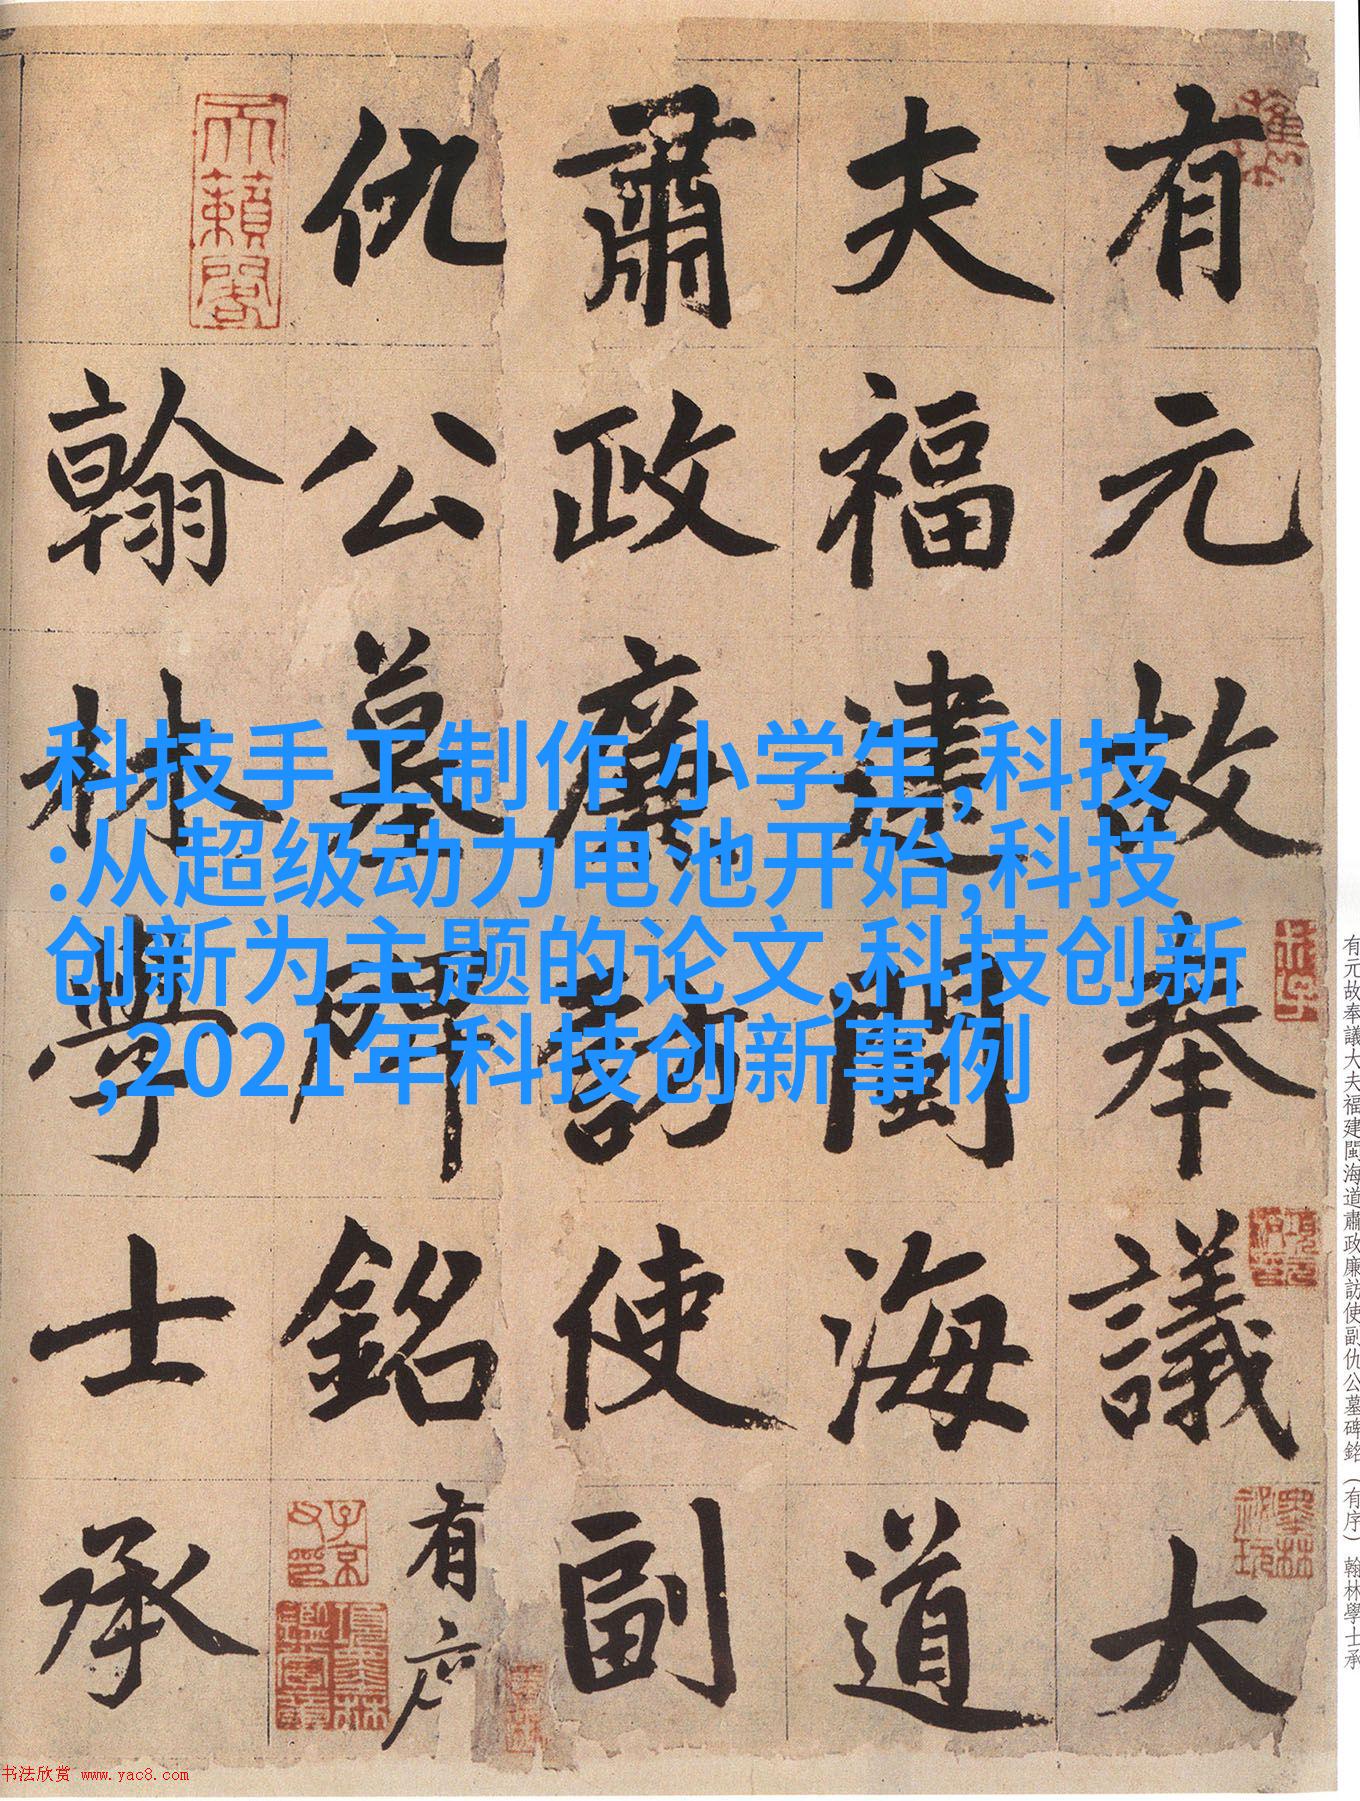 有元故奉議大
夫福建閩海道
肅政廉訪使副
仇公墓碑銘有序
翰林學士承
天籟閣
子京父印
科技手工制作 小学生,科技
:从超级动力电池开始,科技
创新为主题的论文,科技创新
,2021年科技创新事例
有元故奉議大夫福建閩海道肅政廉訪使副仇公墓碑銘(有序) 翰林學士承
书法欣赏 www.yac8.com